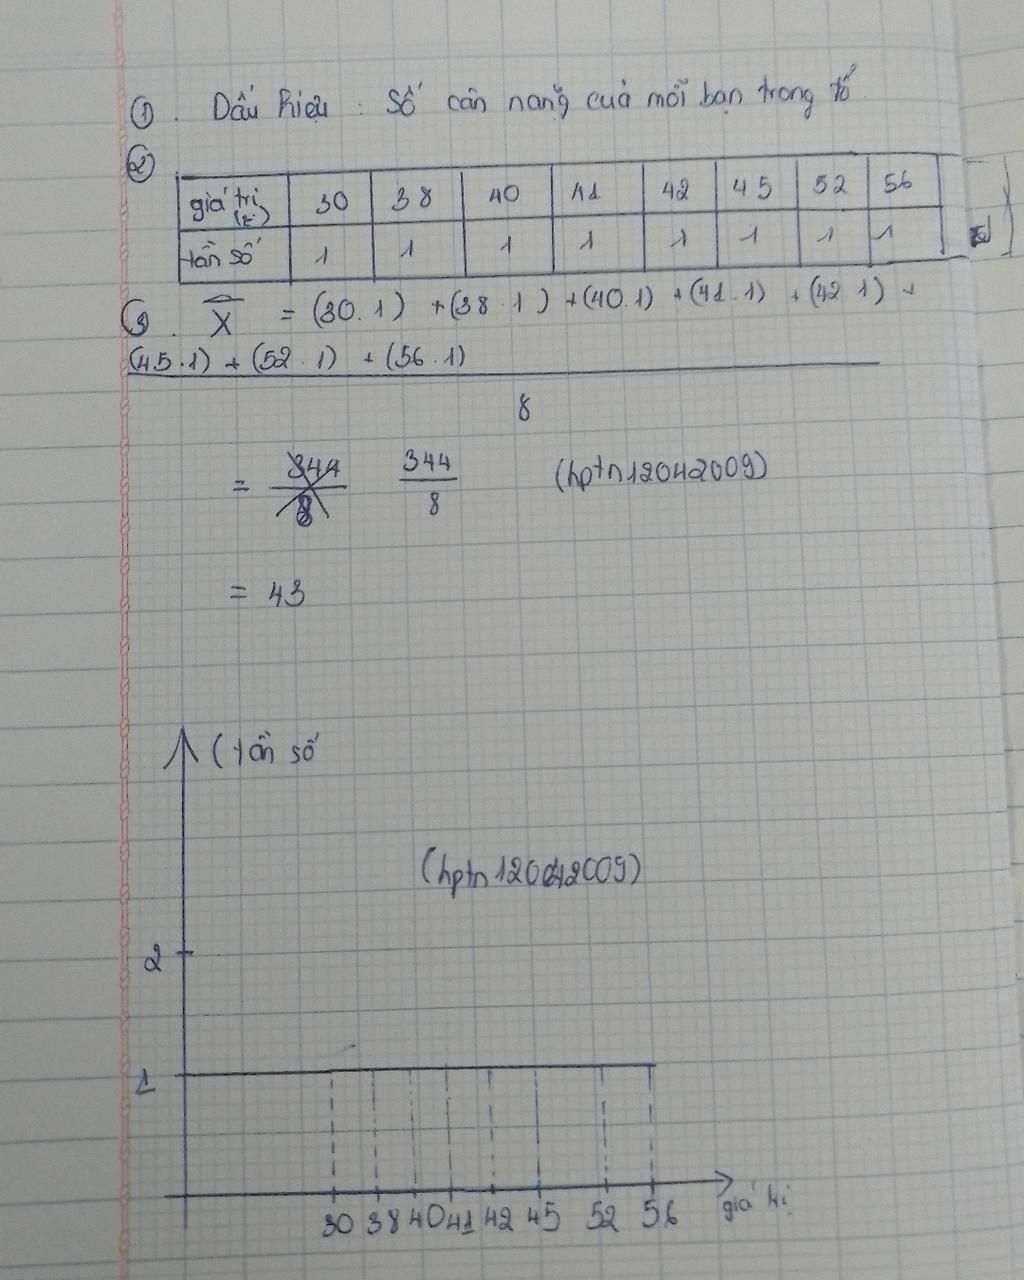 ① . Dấu hiệu : Số cân nặng của mỗi bạn trong tổ
②
giá trị (x) 30 38 40 41 42 45 52 56
tần số 1 1 1 1 1 1 1 1
③ . X = (30.1) + (38.1) + (40.1) + (41.1) + (42.1) +
(45.1) + (52.1) + (56.1)
8
= 344 344 (hptn12042009)
8 8
= 43
(tần số
(hptn12042009)
2
1
30 38 40 41 42 45 52 56 giá trị